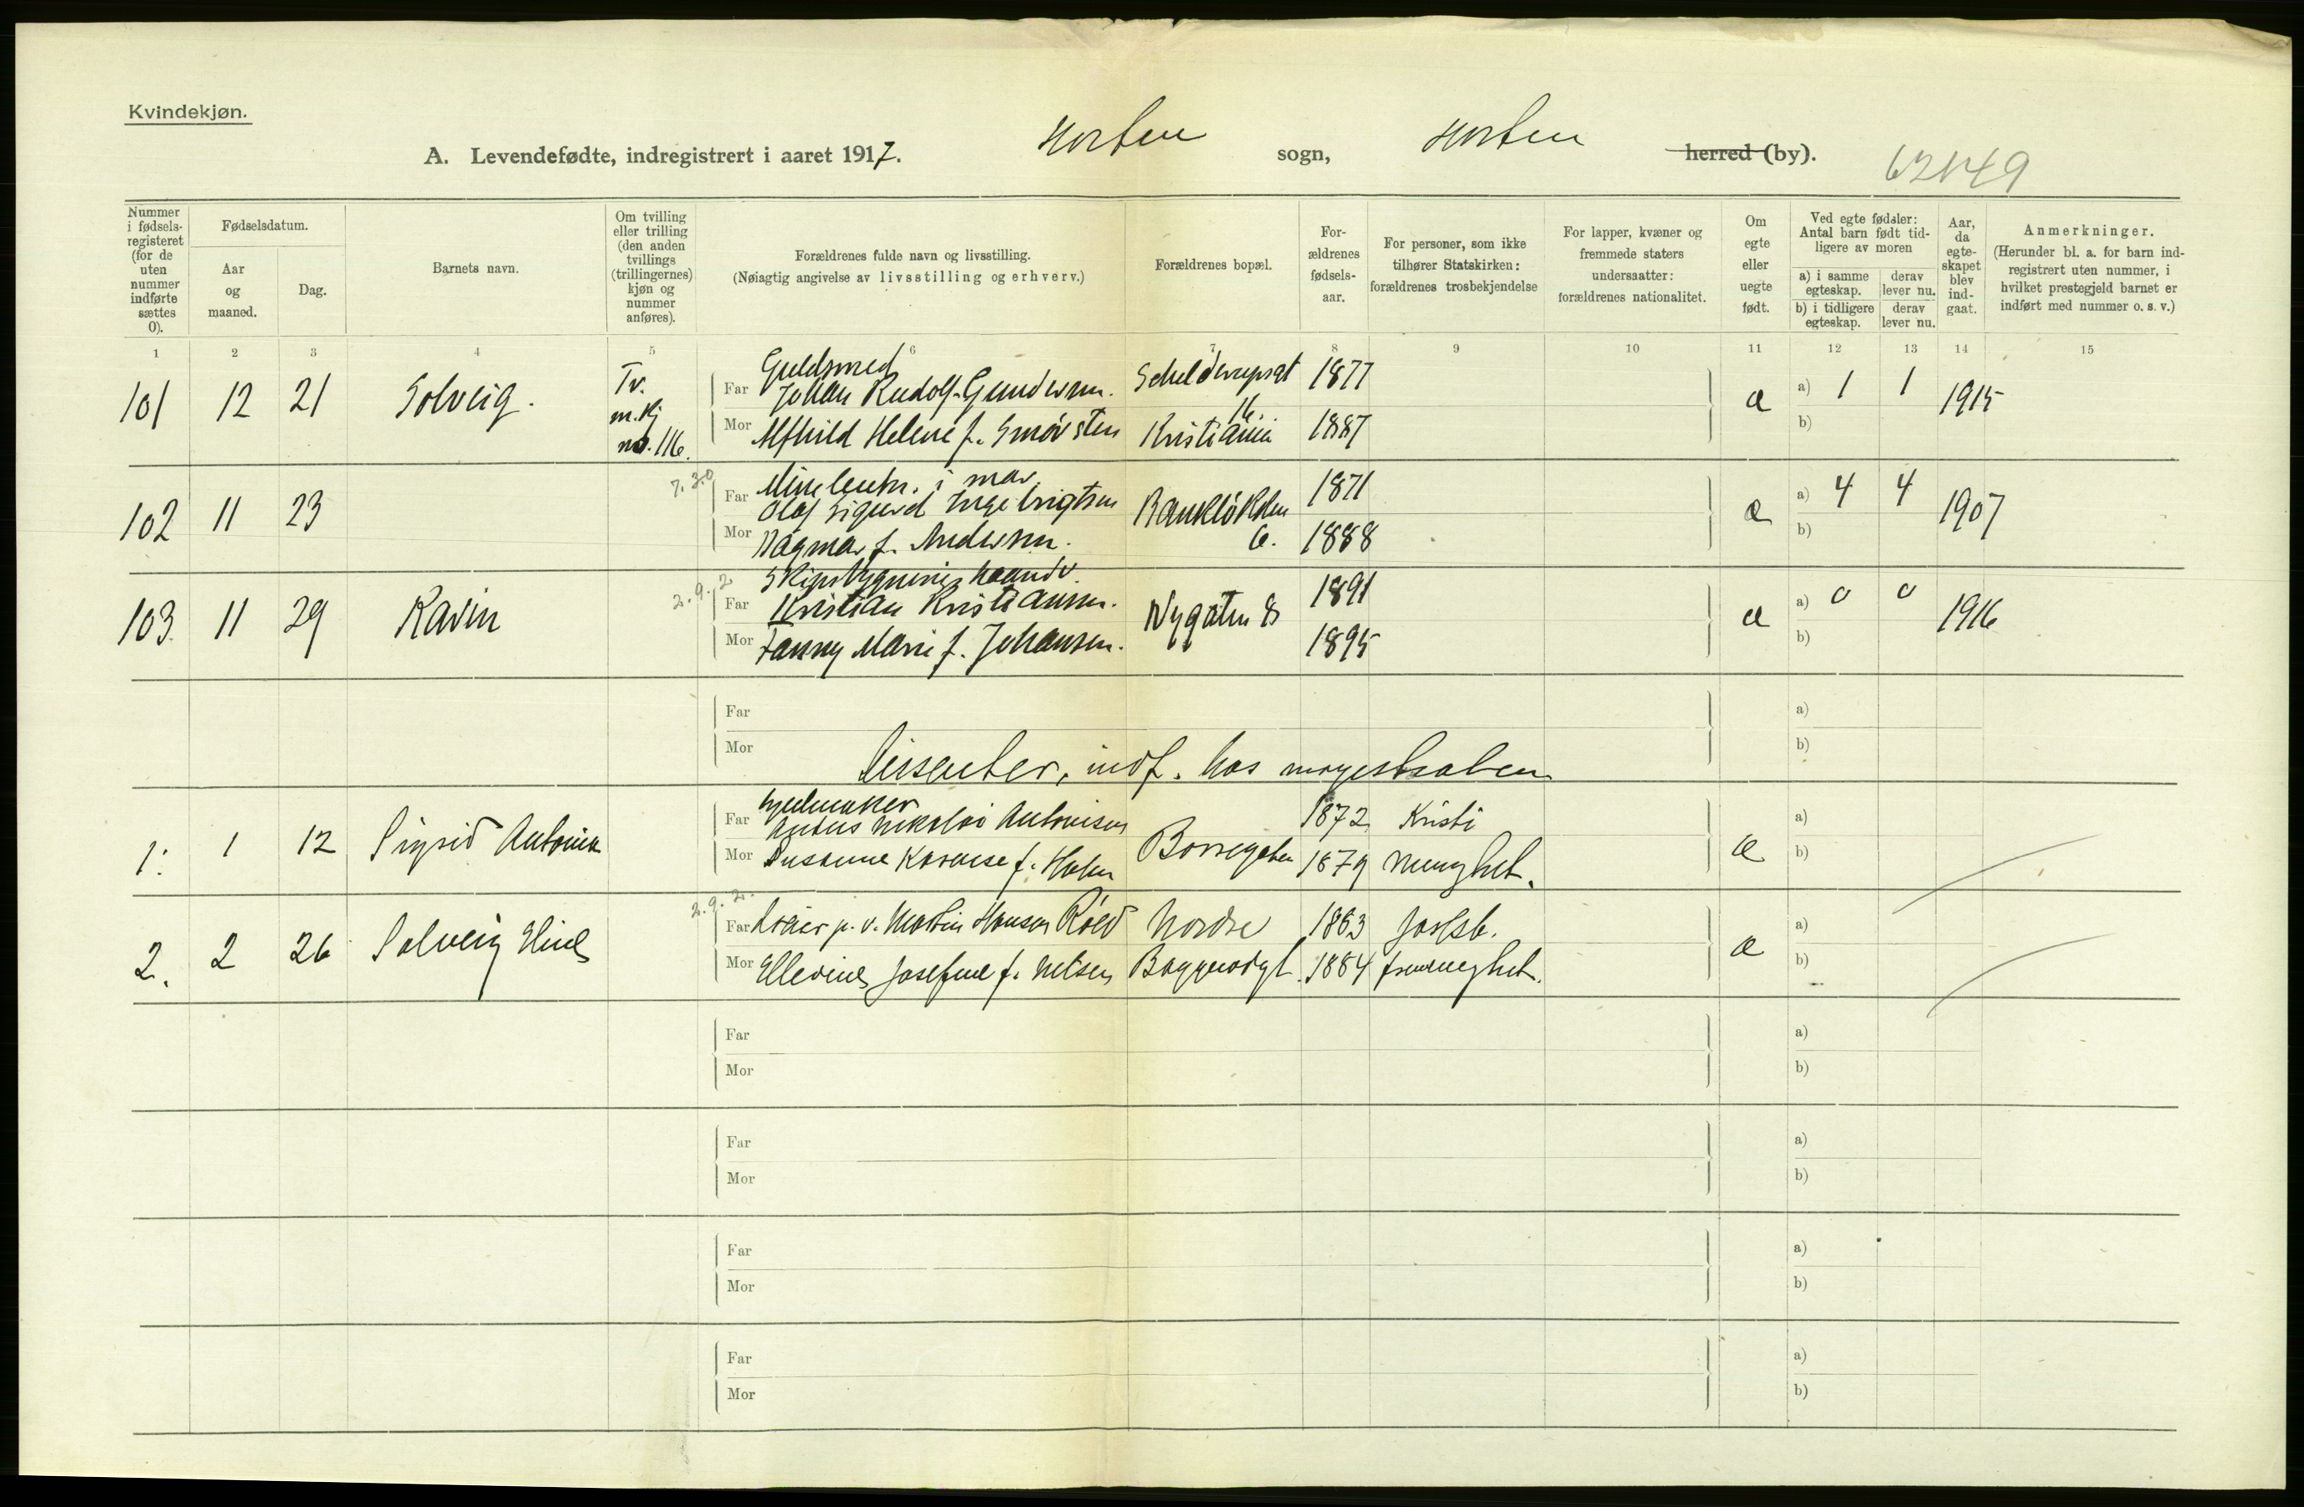 Kvindekjøn.
A. Levendefødte, indregistrert i aaret 1917. Horten sogn, Horten herred (by).
62149
Nummer i fødsels-registeret (for de uten nummer indførte sættes 0).
Fødselsdatum.
Aar og maaned.
Dag.
Barnets navn.
Om tvilling eller trilling (den anden tvillings (trillingernes) kjøn og nummer anføres).
Forældrenes fulde navn og livsstilling.
(Nøiagtig angivelse av livsstilling og erhverv.)
Forældrenes bopæl.
For-ældrenes fødsels-aar.
For personer, som ikke tilhører Statskirken: forældrenes trosbekjendelse
For lapper, kvæner og fremmede staters undersaatter: forældrenes nationalitet.
Om egte eller uegte født.
Ved egte fødsler: Antal barn født tid-ligere av moren
a) i samme egteskap.
derav lever nu.
b) i tidligere egteskap.
derav lever nu.
Aar, da egte-skapet blev ind-gaat.
Anmerkninger.
(Herunder bl. a. for barn ind-registrert uten nummer, i hvilket prestegjeld barnet er indført med nummer o. s. v.)
1 2 3 4 5 6 7 8 9 10 11 12 13 14 15
Guldsmed
101 12 21 Solveig. Tv. m.kj no. 116. Far Johan Rudolf Gundersen. 1877 a a) 1 1 1915
Mor Alfhild Helene f. Smørsten Kristiania 16. 1887 b)
7.30
102 11 23 Far Olaf Sigurd Ingebrigtsen Bankløkken 6. 1871 e a) 4 4 1907
Mor Dagmar f. Andersen. 1888 b)
2.9.2
103. 11 29 Karin Far Kristian Kristiansen. Nygaten 8 1891 a a) 0 0 1916
Mor Fanny Marie f. Johansen. 1895 b)
Far a)
Mor b)
Dissenter, indf. hos magistraten
1. 1 12 Sigrid Antonia Far Nikolai Antonisen Borregaten 1872 Kristi a)
Mor Susanne Karense f. Holm 1879 Menighet. e b)
2.9.2.
2. 2 26 Solveig Eline Far Martin Hansen Røed Nordre 1863 a a)
Mor Ellevine Josefine f. Nilsen 1884 b)
Far a)
Mor b)
Far a)
Mor b)
Far a)
Mor b)
Far a)
Mor b)